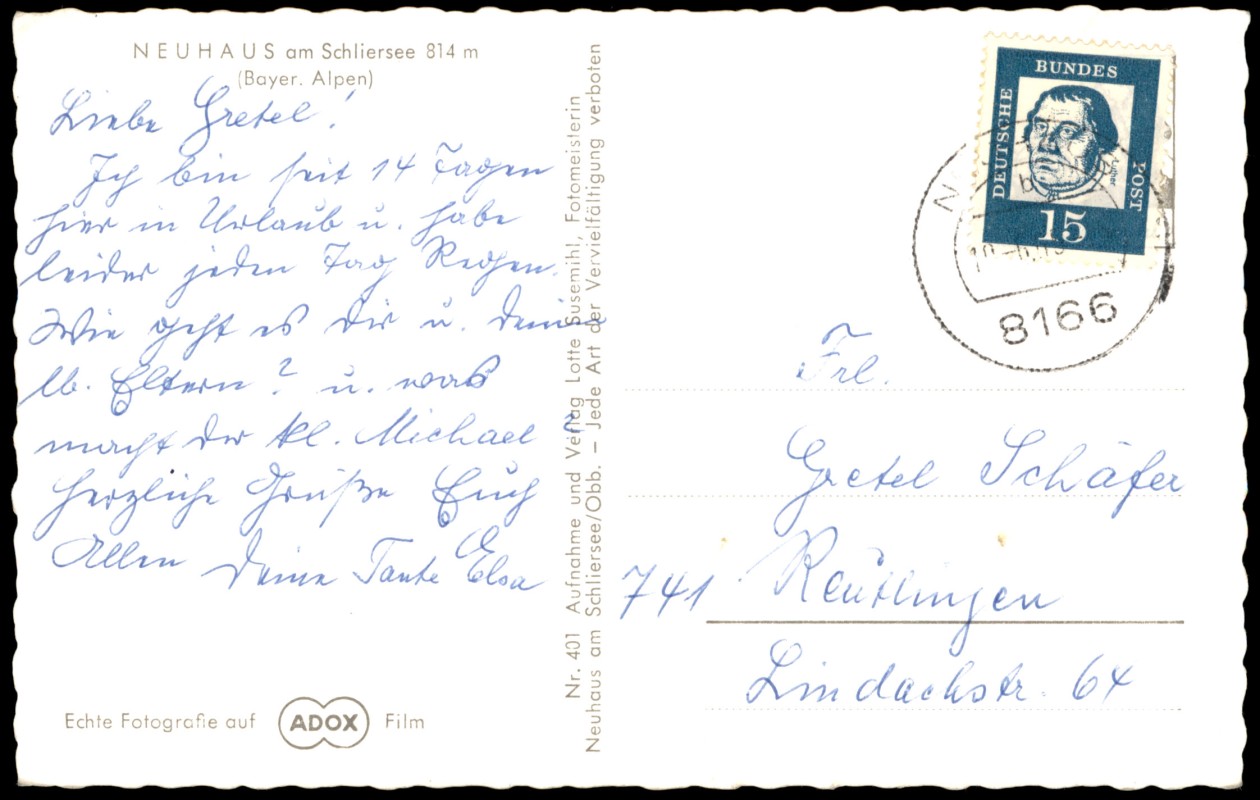 NEUHAUS am Schliersee 814 m
(Bayer. Alpen)
Liebe Gretel!
Ich bin seit 14 Tagen
hier in Urlaub u. habe
leider jeden Tag Regen.
Wie geht es Dir u. Deinen
lb. Eltern? u. was
macht der kl. Michael?
Herzliche Grüße Euch
Allen Deine Tante Elsa
Echte Fotografie auf ADOX Film
Nr. 401 Aufnahme und Verlag Lotte Susemihl, Fotomeisterin
Neuhaus am Schliersee/Obb. – Jede Art der Vervielfältigung verboten
DEUTSCHE BUNDES POST
Luther
15
b
8166
Frl.
Gretel Schäfer
741 Reutlingen
Lindachstr. 64